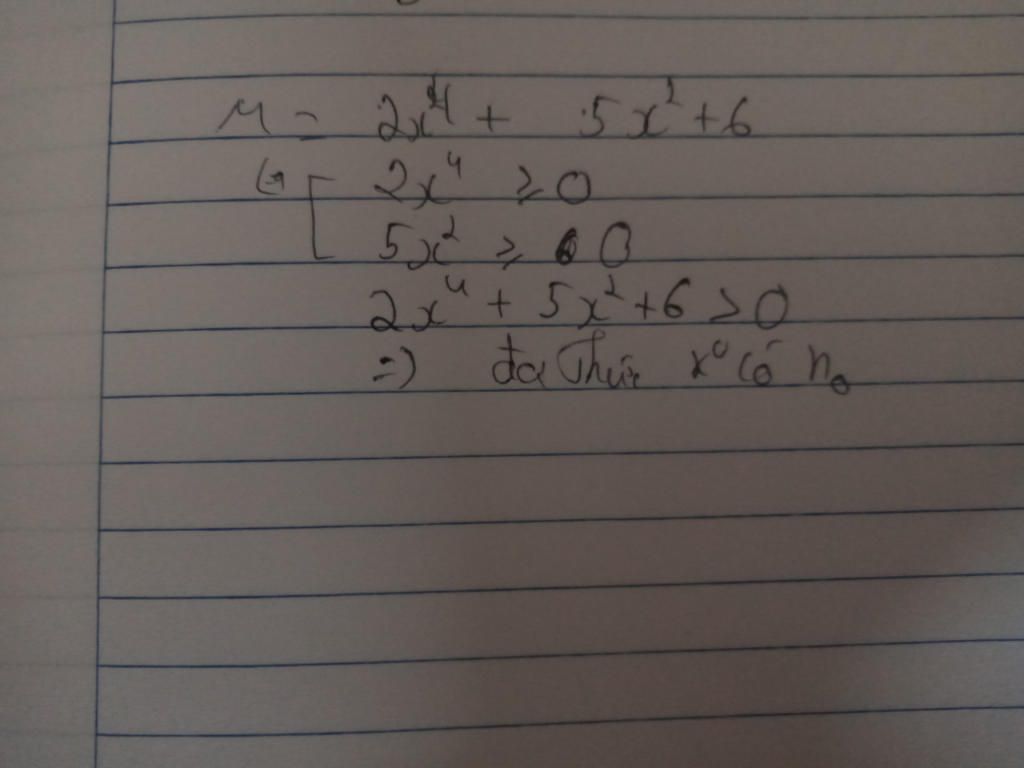 M = 2x⁴ + 5x² + 6
⇔ [ 2x⁴ ≥ 0
5x² ≥ 0
2x⁴ + 5x² + 6 > 0
=> đa thức k⁰ có n₀